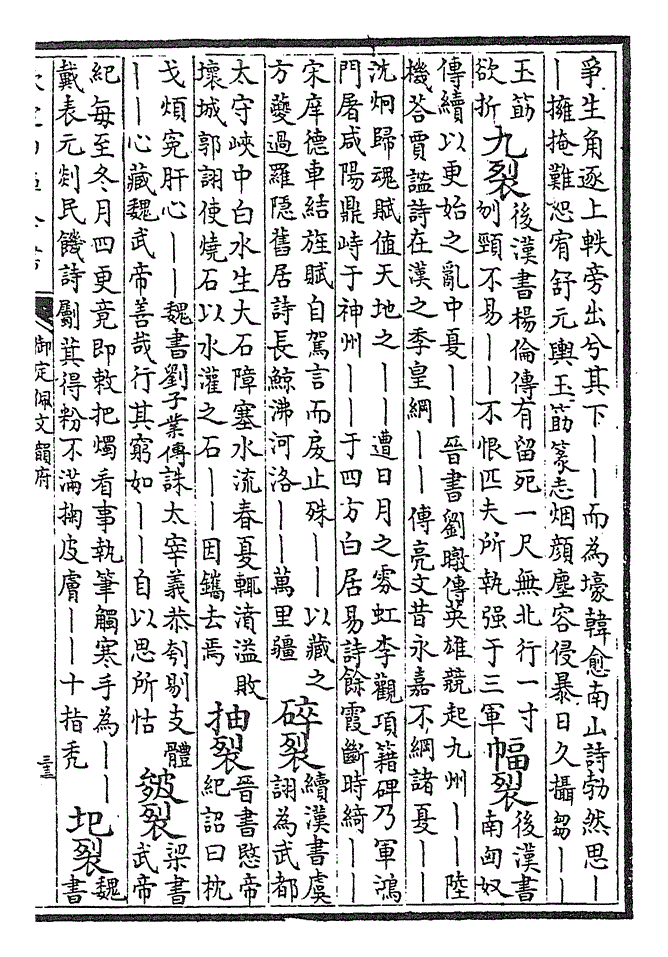 爭生角逐上軼旁出兮其下丨丨而為壕韓愈南山詩勃然思丨
丨擁掩難恕宥舒元輿玉筯篆志烟顏塵容侵暴日久攝芻丨丨
玉筯
欲折
九裂
後漢書楊倫傳有留死一尺無北行一寸
刎頸不易丨丨不恨匹夫所執强于三軍
幅裂
後漢書
南匈奴
傳續以更始之亂中夏丨丨晉書劉暾傳英雄競起九州丨丨陸
機答賈謐詩在漢之季皇綱丨丨傳亮文昔永嘉不綱諸夏丨丨
沈炯歸魂賦值天地之丨丨遭日月之雰虹李觀項籍碑乃軍鴻
門屠咸陽鼎峙于神州丨丨于四方白居易詩餘霞斷時綺丨丨
宋庠德車結旌賦自駕言而戾止殊丨丨以藏之
方夔過羅隱舊居詩長鯨沸河洛丨丨萬里疆
碎裂
續漢書虞
詡為武都
太守峽中白水生大石障塞水流春夏輒濆溢敗
壞城郭詡使燒石以水灌之石丨丨因鐫去焉
抽裂
晉書愍帝
紀詔曰枕
戈煩寃肝心丨丨魏書劉子業傳誅太宰義恭刳剔支體
丨丨心藏魏武帝善哉行其窮如丨丨自以思所怙
皴裂
梁書
武帝
紀每至冬月四更竟即敕把燭看事執筆觸寒手為丨丨
戴表元剡民饑詩劚萁得粉不滿掬皮膚丨丨十指禿
圯裂
魏
書
御定佩文韻府